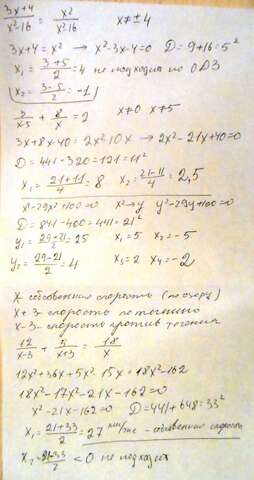 3x+4/x²-16 = x²/x²-16   x≠±4
3x+4=x² → x²-3x-4=0   D=9+16=5²
x₁ = 3+5/2 = 4 не подходит по ОДЗ
x₂ = 3-5/2 = -1
3/x-5 + 8/x = 2   x≠0   x≠5
3x+8x-40=2x²-10x → 2x²-21x+40=0
D=441-320=121=11²
x₁ = 21+11/4 = 8   x₂ = 21-11/4 = 2,5
x⁴-29x²+100=0   x²→y   y²-29y+100=0
D=841-400=441=21²
y₁ = 29+21/2 = 25   x₁=5   x₂=-5
y₂ = 29-21/2 = 4   x₃=2   x₄=-2
x - собственная скорость (по озеру)
x+3 - скорость по течению
x-3 - скорость против течения
12/x-3 + 5/x+3 = 18/x
12x²+36x+5x²-15x=18x²-162
18x²-17x²-21x-162=0
x²-21x-162=0   D=441+648=33²
x₁ = 21+33/2 = 27 км/час - собственная скорость
x₂ = 21-33/2 < 0 не подходит